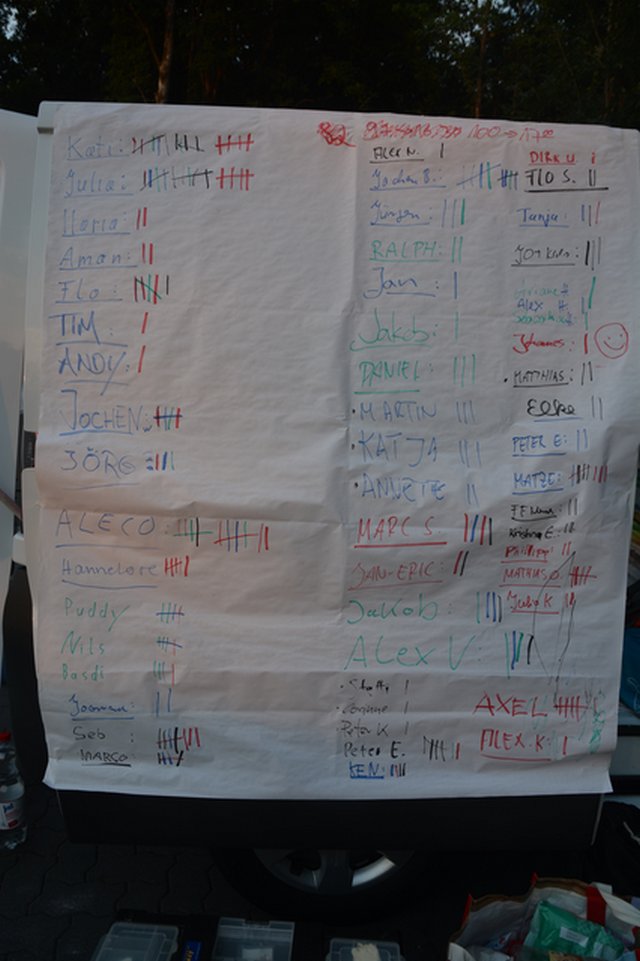 Kati:
Julia:
Aman:
Flo:
TIM:
ANDY:
JOCHEN:
JÖRG:
ALECO:
Hannelore
Puddy
Nils
Basdi
Seb:
MARCO:
100 → 17
ALEX N.
Jochen B.:
Jürgen:
RALPH:
Jan:
Jakob:
DANIEL:
· MARTIN
· KATJA
· ANNETTE
MARC S.
JAN-ERIC:
Jakob:
ALEX V:
Peter K
Peter E.
KEN:
DIRK U.
FLO S.
Tanja:
Alex H.
Johannes:
· MATTHIAS:
Elke
PETER E:
MATZE:
Philipp:
MATHIAS O.
Julia K
AXEL
ALEX. K: